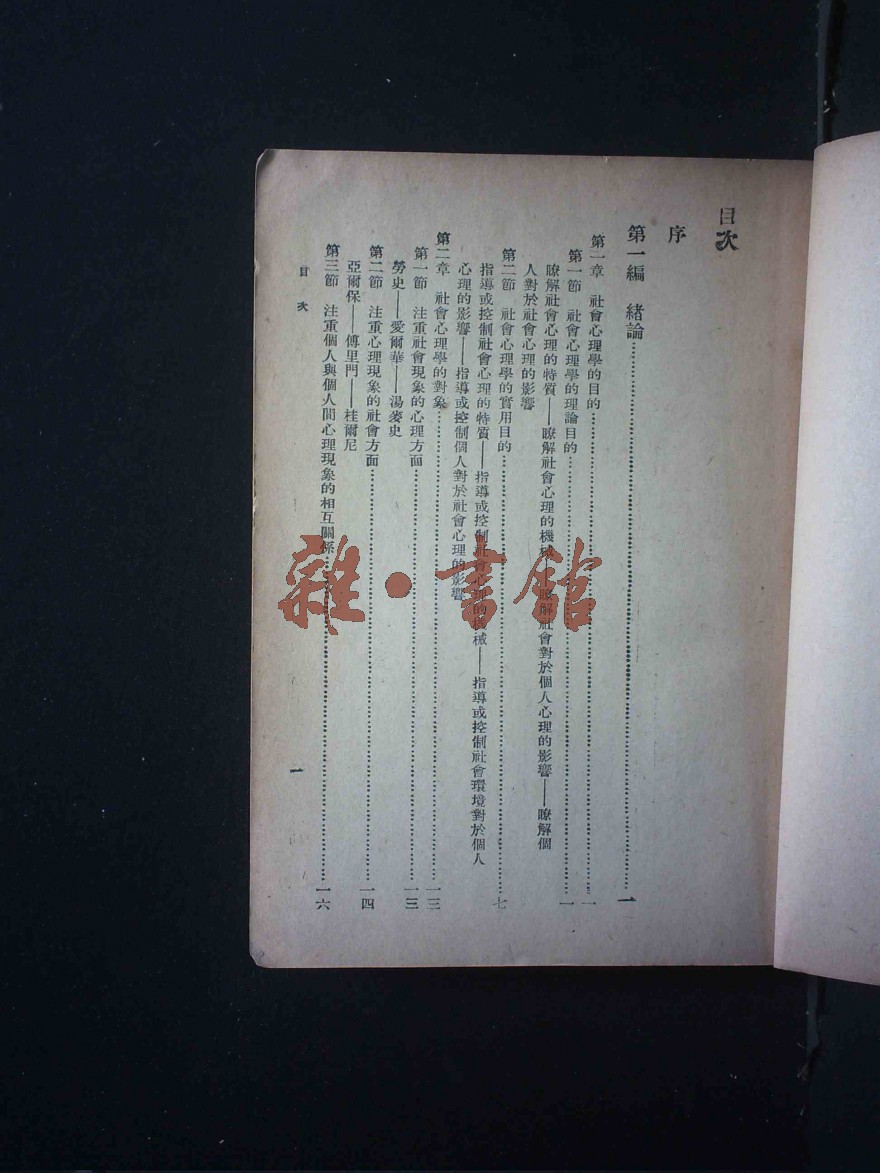 目次
序
第一編　緒論……一
第一章　社會心理學的目的……一
第一節　社會心理學的理論目的……一
瞭解社會心理的特質——瞭解社會心理的機械——瞭解社會對於個人心理的影響——瞭解個
人對於社會心理的影響
第二節　社會心理學的實用目的……七
指導或控制社會心理的特質——指導或控制社會心理的機械——指導或控制社會環境對於個人
心理的影響——指導或控制個人對於社會心理的影響
第二章　社會心理學的對象……一三
第一節　注重社會現象的心理方面……一三
勞史——愛爾華——湯麥史
第二節　注重心理現象的社會方面……一四
亞爾保——傅里門——桂爾尼
第三節　注重個人與個人間心理現象的相互關係……一六
目次
一
雜·書館